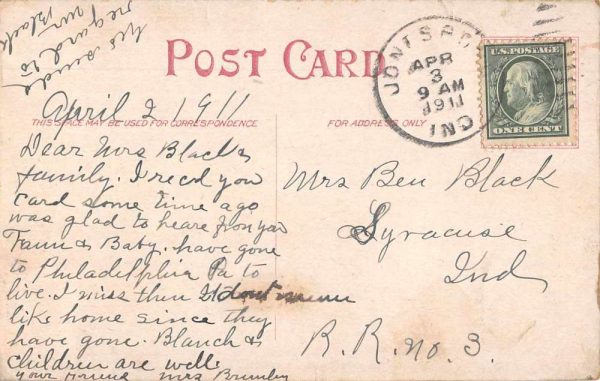 POST CARD
THIS SPACE MAY BE USED FOR CORRESPONDENCE
FOR ADDRESS ONLY
JONESBORO
APR
3
9 AM
1911
IND
U.S. POSTAGE
ONE CENT
April 2 1911
Dear Mrs Black &
family. I recd you
card some time ago
was glad to heare from you
& Baby. have gone
to Philadelphia Pa to
live. I miss them dont
like home since they
have gone. Blanch &
children are well
your Friend Mrs
regard to
Mr Black
Mrs Ben Black
Syracuse
Ind
R. R. No. 3.